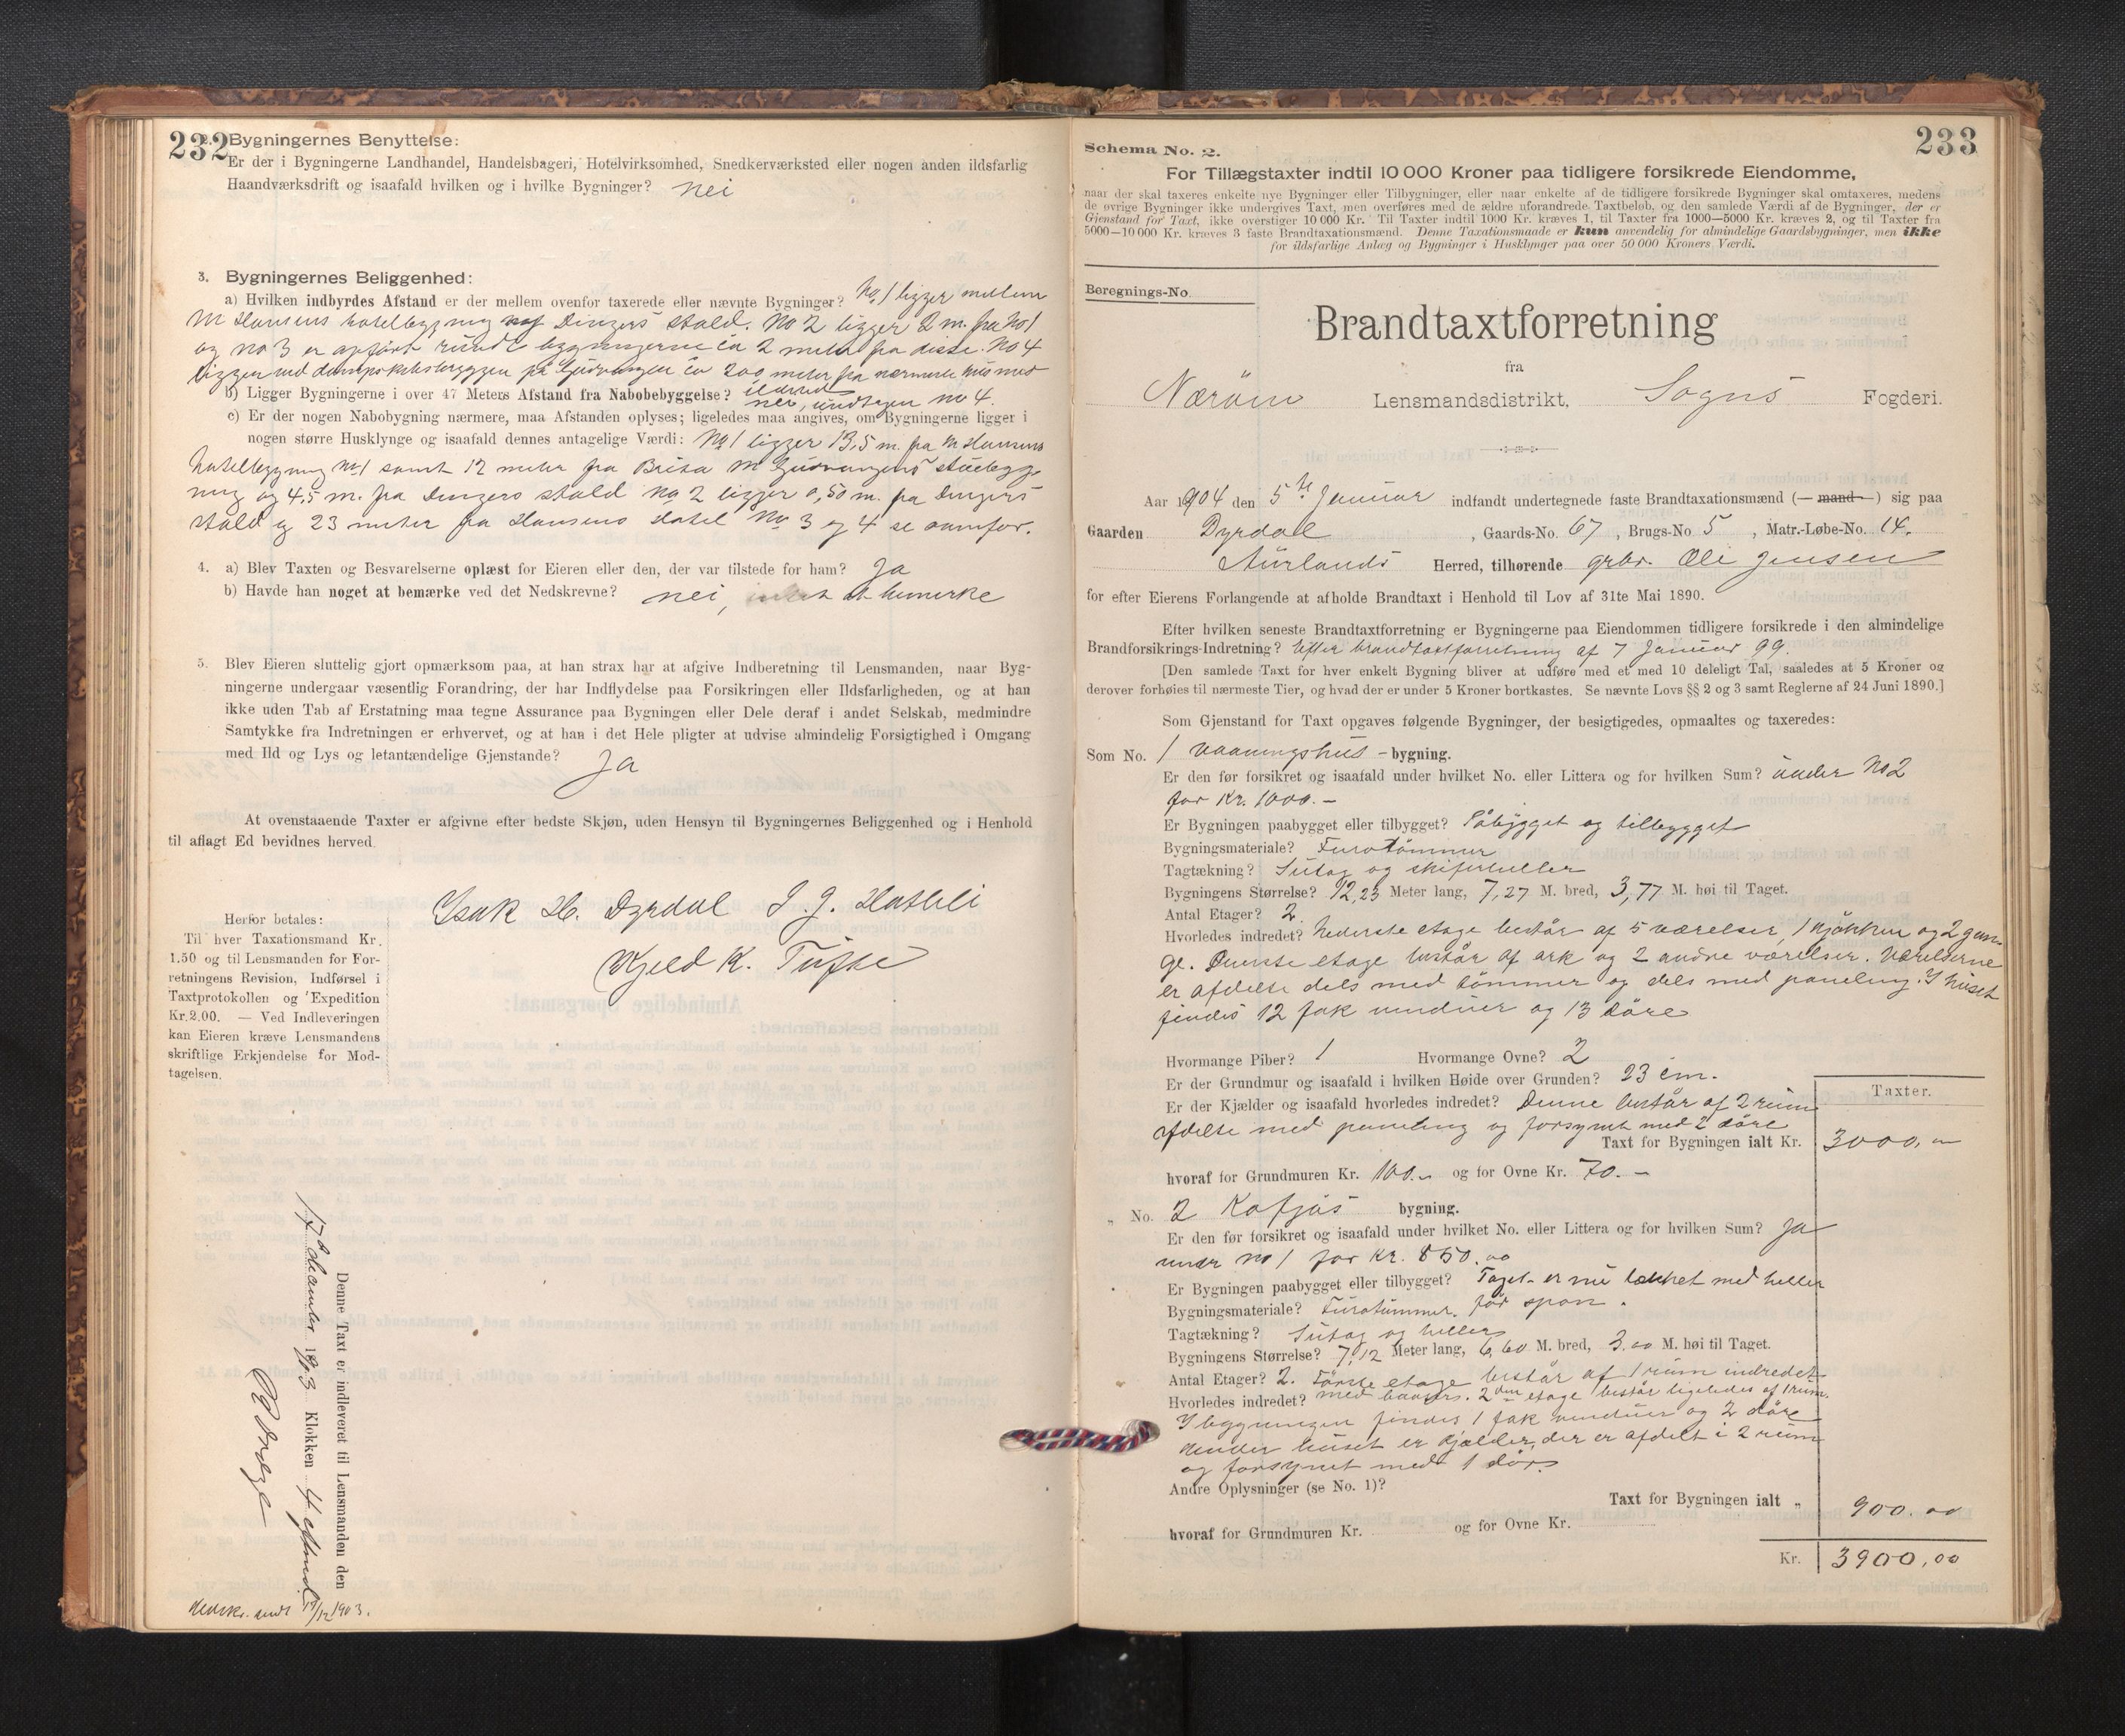 232
2. Bygningernes Benyttelse:
Er der i Bygningerne Landhandel, Handelsbageri, Hotelvirksomhed, Snedkerværksted eller nogen anden ildsfarlig
Haandværksdrift og isaafald hvilken og i hvilke Bygninger? nei
3. Bygningernes Beliggenhed:
a) Hvilken indbyrdes Afstand er der mellem ovenfor taxerede eller nævnte Bygninger? No 1 ligger mellem
M Hansens hotelbygning og Dingers stald. No 2 ligger 2 m. fra No 1
og no 3 er opført rundt bygningerne ca 2 meter fra disse. No 4
ligger ved dampskibsbryggen på Gudvangen ca 200 meter fra nærmeste hus med
ildsted
b) Ligger Bygningerne i over 47 Meters Afstand fra Nabobebyggelse? nei, undtagen no 4.
c) Er der nogen Nabobygning nærmere, maa Afstanden oplyses; ligeledes maa angives, om Bygningerne ligger i
nogen større Husklynge og isaafald dennes antagelige Værdi: No 1 ligger 13,5 m. fra M Hansens
hotelbygning no 1 samt 12 meter fra Brita M Gudvangens stuebyg-
ning og 4,5 m. fra Dingers stald no 2 ligger 0,50 m. fra Dingers
stald og 23 meter fra Hansens Hotel No 3 og 4 se ovenfor.
4. a) Blev Taxten og Besvarelserne oplæst for Eieren eller den, der var tilstede for ham? Ja
b) Havde han noget at bemærke ved det Nedskrevne? nei, intet at bemerke
5. Blev Eieren sluttelig gjort opmærksom paa, at han strax har at afgive Indberetning til Lensmanden, naar Byg-
ningerne undergaar væsentlig Forandring, der har Indflydelse paa Forsikringen eller Ildsfarligheden, og at han
ikke uden Tab af Erstatning maa tegne Assurance paa Bygningen eller Dele deraf i andet Selskab, medmindre
Samtykke fra Indretningen er erhvervet, og at han i det Hele pligter at udvise almindelig Forsigtighed i Omgang
med Ild og Lys og letantændelige Gjenstande? Ja
At ovenstaaende Taxter er afgivne efter bedste Skjøn, uden Hensyn til Bygningernes Beliggenhed og i Henhold
til aflagt Ed bevidnes herved.
Isak H. Dyrdal J. J. Hatleli
Kjeld K. Tufte
Herfor betales:
Til hver Taxationsmand Kr.
1.50 og til Lensmanden for For-
retningens Revision, Indførsel i
Taxtprotokollen og Expedition
Kr. 2.00. — Ved Indleveringen
kan Eieren kræve Lensmandens
skriftlige Erkjendelse for Mod-
tagelsen.
Denne Taxt er indleveret til Lensmanden den
17de december 1903 Klokken 4 eftmd.
Nedskr. sendt 19/12 1903.
233
Schema No. 2.
For Tillægstaxter indtil 10 000 Kroner paa tidligere forsikrede Eiendomme,
naar der skal taxeres enkelte nye Bygninger eller Tilbygninger, eller naar enkelte af de tidligere forsikrede Bygninger skal omtaxeres, medens
de øvrige Bygninger ikke undergives Taxt, men overføres med de ældre uforandrede Taxtbeløb, og den samlede Værdi af de Bygninger, der er
Gjenstand for Taxt, ikke overstiger 10 000 Kr. Til Taxter indtil 1000 Kr. kræves 1, til Taxter fra 1000—5000 Kr. kræves 2, og til Taxter fra
5000—10 000 Kr. kræves 3 faste Brandtaxationsmænd. Denne Taxationsmaade er kun anvendelig for almindelige Gaardsbygninger, men ikke
for ildsfarlige Anlæg og Bygninger i Husklynger paa over 50 000 Kroners Værdi.
Beregnings-No.
Brandtaxtforretning
fra
Nærøens Lensmandsdistrikt, Sogns Fogderi.
Aar 1904 den 5te Januar indfandt undertegnede faste Brandtaxationsmænd (— mand —) sig paa
Gaarden Dyrdal, Gaards-No. 67, Brugs-No 5, Matr.-Løbe-No. 14.
Aurlands Herred, tilhørende grbr. Ole Jensen
for efter Eierens Forlangende at afholde Brandtaxt i Henhold til Lov af 31te Mai 1890.
Efter hvilken seneste Brandtaxtforretning er Bygningerne paa Eiendommen tidligere forsikrede i den almindelige
Brandforsikrings-Indretning? Efter brandtaxtforretning af 7 Januar 99.
[Den samlede Taxt for hver enkelt Bygning bliver at udføre med et med 10 deleligt Tal, saaledes at 5 Kroner og
derover forhøies til nærmeste Tier, og hvad der er under 5 Kroner bortkastes. Se nævnte Lovs §§ 2 og 3 samt Reglerne af 24 Juni 1890.]
Som Gjenstand for Taxt opgaves følgende Bygninger, der besigtigedes, opmaaltes og taxeredes:
Som No. 1 Vaaningshus - bygning.
Er den før forsikret og isaafald under hvilket No. eller Littera og for hvilken Sum? under No 2
for Kr. 1000.-
Er Bygningen paabygget eller tilbygget? Påbygget og tilbygget
Bygningsmateriale? Furotømmer
Tagtækning? Sutag og skiferheller
Bygningens Størrelse? 12,23 Meter lang, 7,27 M. bred, 3,77 M. høi til Taget.
Antal Etager? 2.
Hvorledes indredet? Nederste etage består af 5 værelser, 1 kjøkken og 2 gan-
ge. Øverste etage består af ark og 2 andre værelser. Værelserne
er afdelte dels med tømmer og dels med paneling. I huset
findes 12 fak vinduer og 13 døre
Hvormange Piber? 1 Hvormange Ovne? 2
Er der Grundmur og isaafald i hvilken Høide over Grunden? 23 cm.
Er der Kjælder og isaafald hvorledes indredet? Denne består af 2 rum
afdelte med paneling og forsynet med 2 døre
Taxter.
Taxt for Bygningen ialt Kr. 3000,-
hvoraf for Grundmuren Kr. 100.- og for Ovne Kr. 70.-
„ No. 2 Kofjøs bygning.
Er den før forsikret og isaafald under hvilket No. eller Littera og for hvilken Sum? Ja
under no 1 for Kr. 850.00
Er Bygningen paabygget eller tilbygget? Taget er nu tækket med heller
Bygningsmateriale? Furutømmer. før spon.
Tagtækning? Sutag og heller
Bygningens Størrelse? 7,12 Meter lang, 6,60 M. bred, 3,00 M. høi til Taget.
Antal Etager? 2. Første etage består af 1 rum indredet
Hvorledes indredet? med baaser. 2den etage består ligeledes af 1 rum.
I bygningen findes 1 fak vinduer og 2 døre
Under huset er kjælder, der er afdelt i 2 rum
og forsynet med 1 dør.
Andre Oplysninger (se No. 1)?
Taxt for Bygningen ialt „ 900.00
hvoraf for Grundmuren Kr. og for Ovne Kr.
Kr. 3900,00